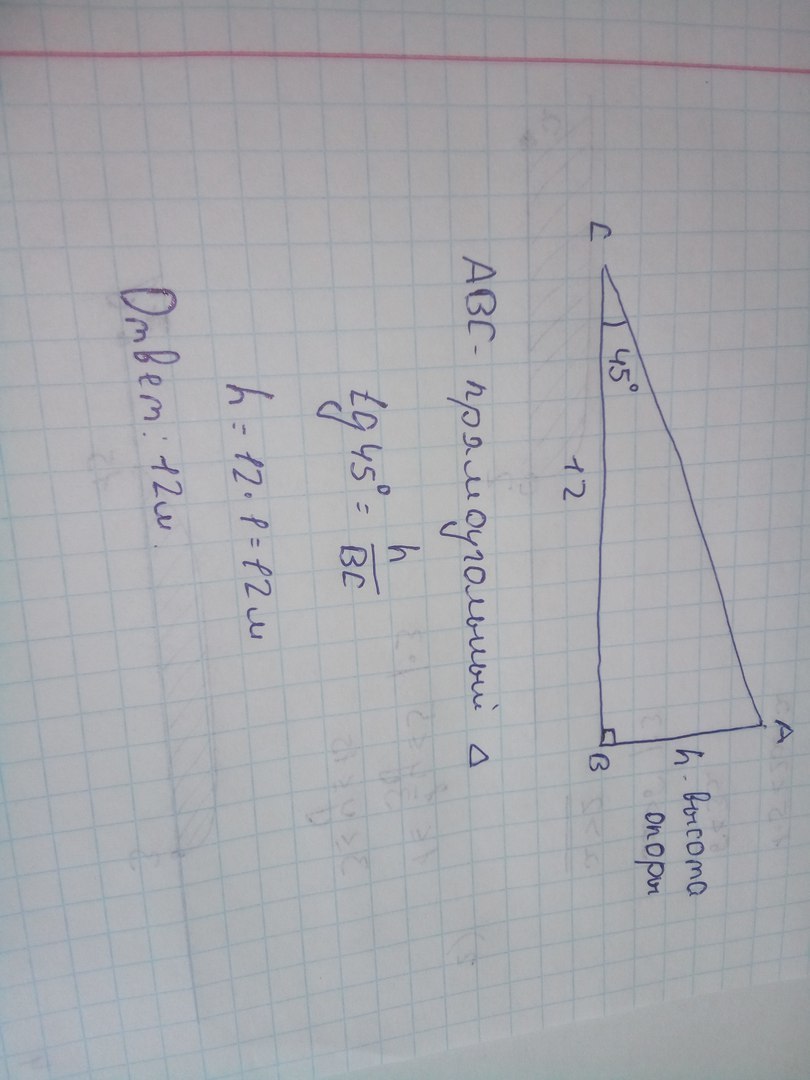 A
45°
h - высота
опоры
C
12
B
ABC - прямоугольный Δ
tg 45° = h/BC
h = 12 · 1 = 12 м
Ответ: 12 м.